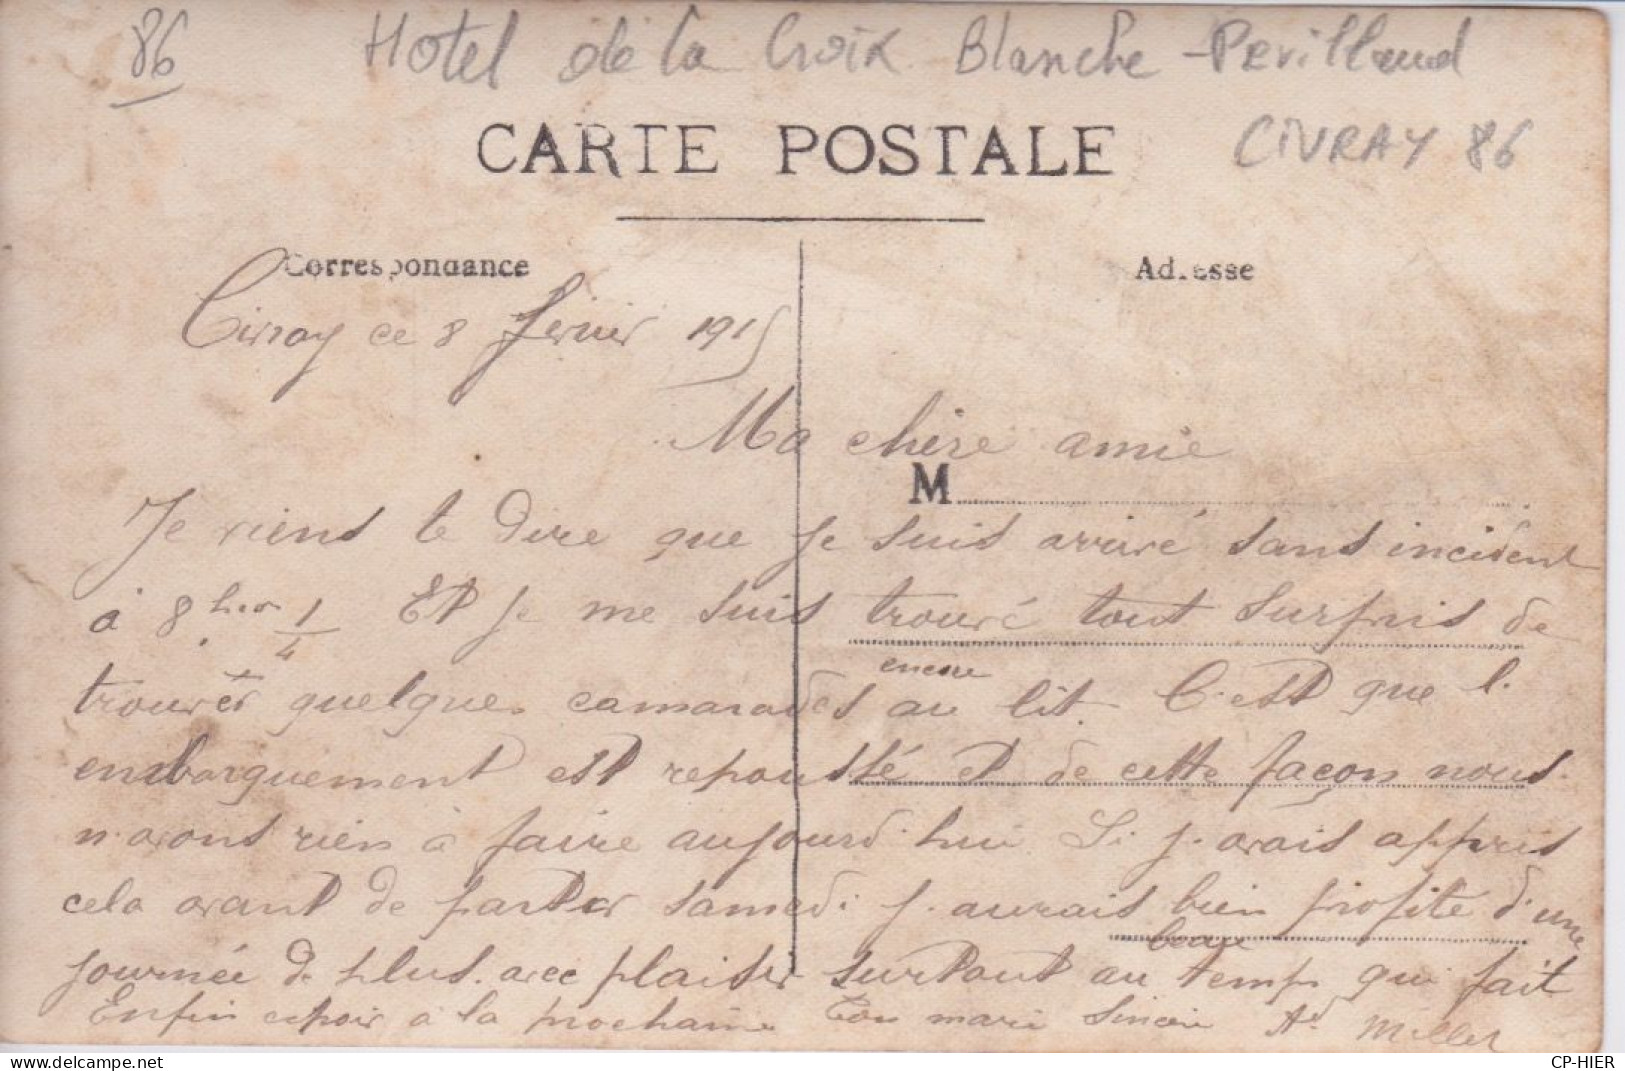 86 Hotel de la Croix Blanche - Pevillaud
CARTE POSTALE CIVRAY 86
Correspondance Adresse
Civray ce 8 fevrier 1915
Ma chère amie
M
Je viens te dire que je suis arrivé sans incident
à 8 h 1/4 Et je me suis trouvé tout surpris de
trouver quelque camarades encore au lit. C'est que l'
embarquement est repoussé et de cette façon nous
n'avons rien à faire aujourd'hui. Si j'avais appris
cela avant de partir samedi j'aurais bien profité d'une
journée de plus avec plaisir surtout au beau temps qui fait
Enfin espoir à la prochaine Ton mari sincère Ad Millet
CP-HIER